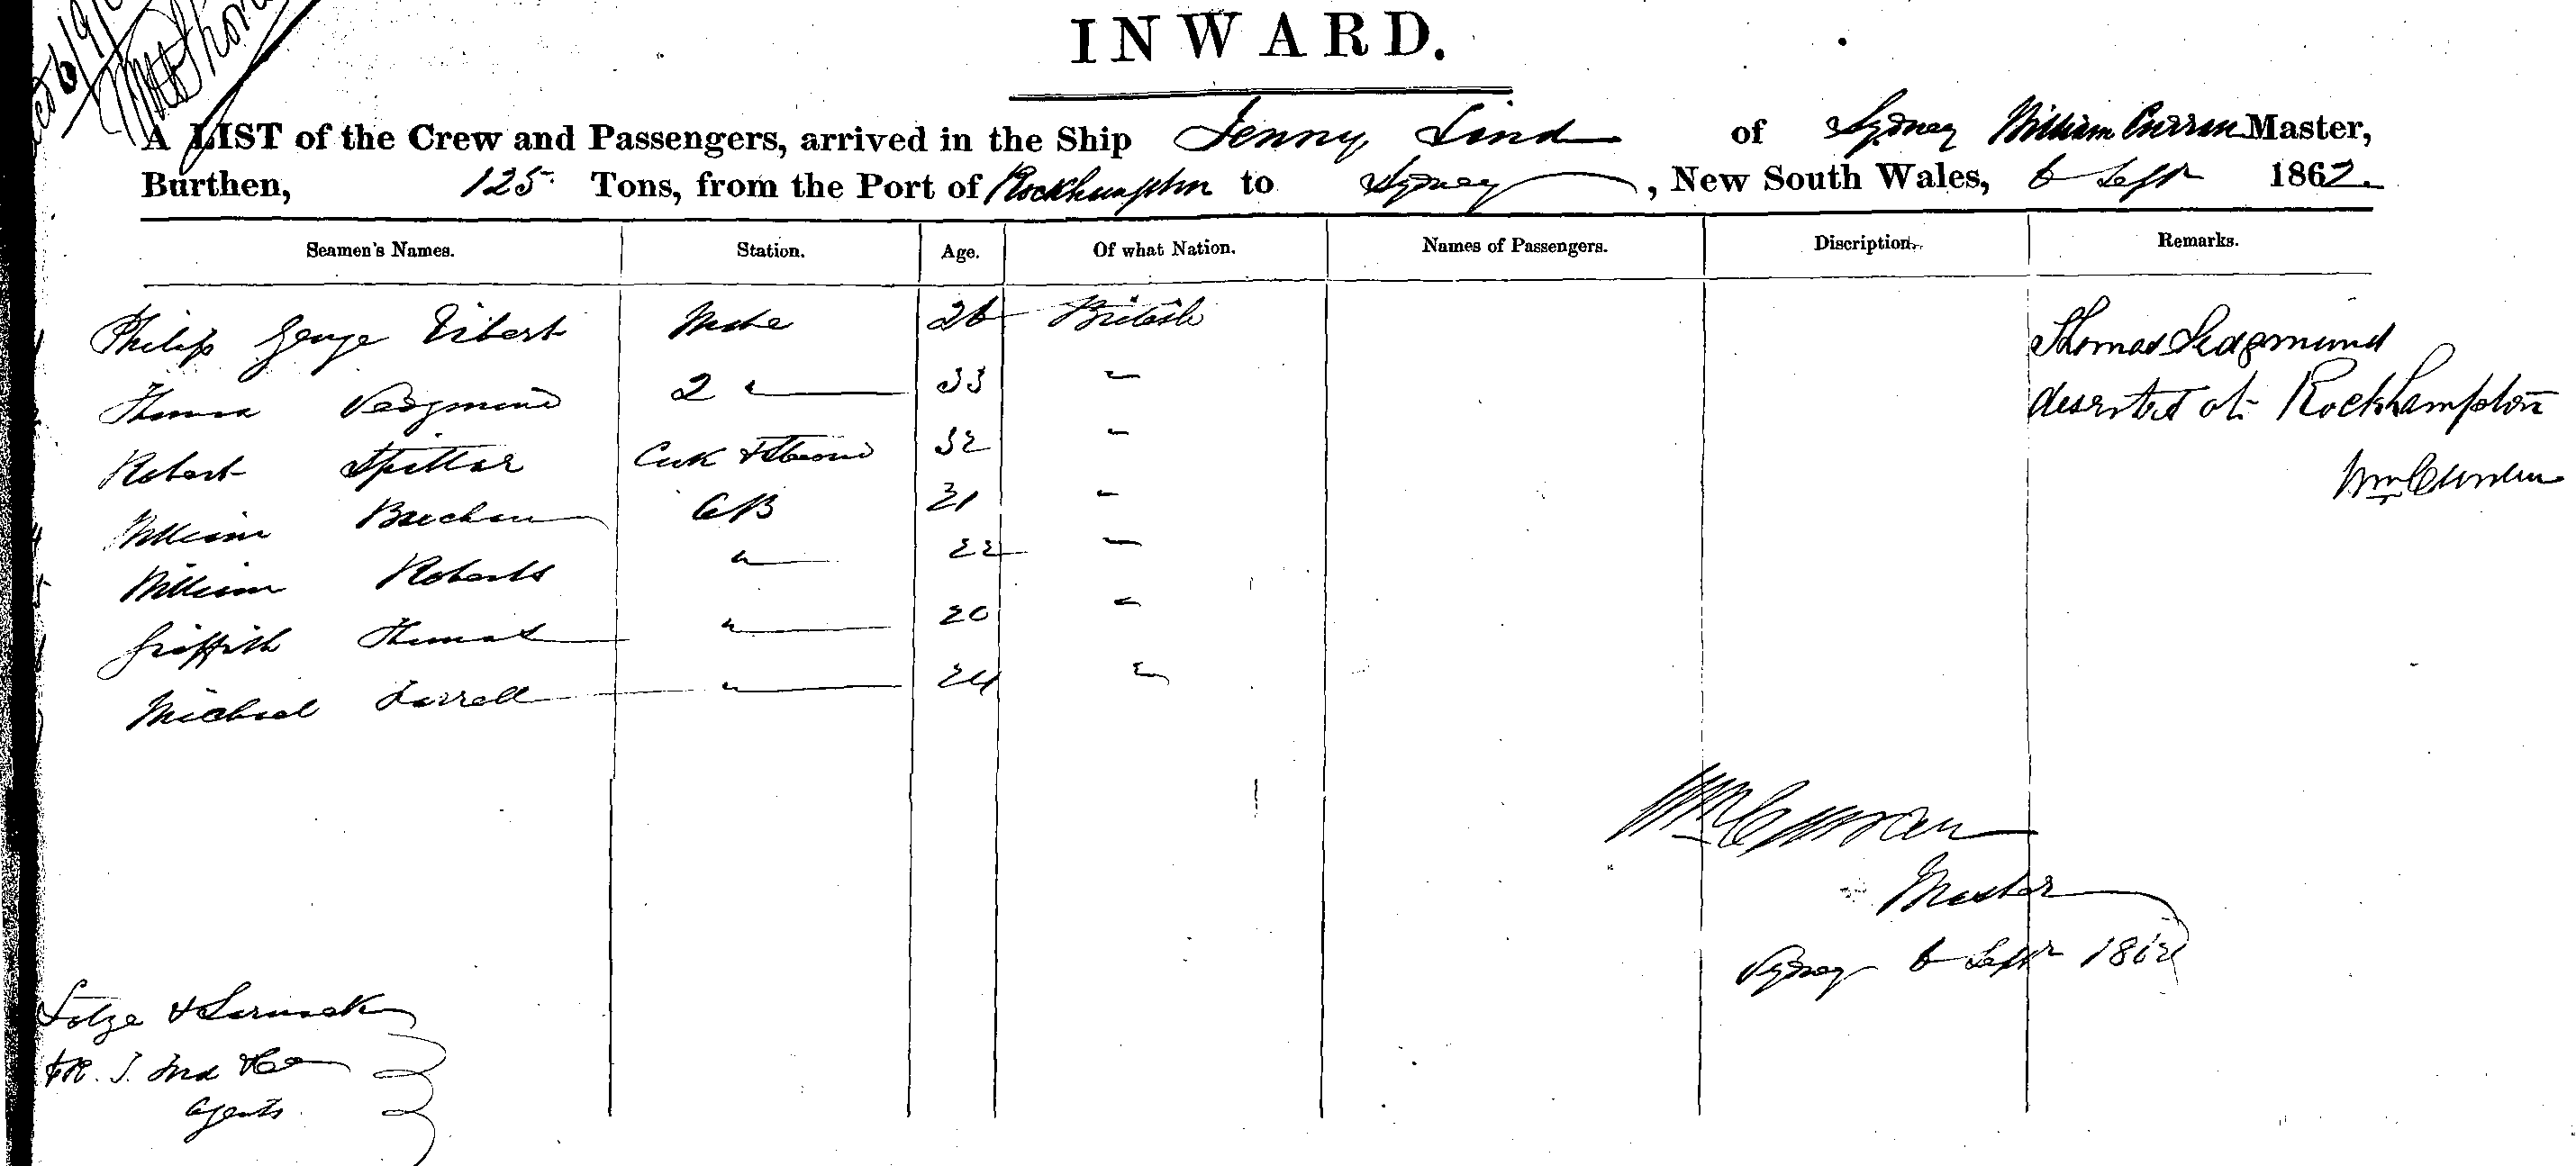 INWARD.
A LIST of the Crew and Passengers, arrived in the Ship Jenny Lind of Sydney William Curran Master,
Burthen, 125 Tons, from the Port of Rockhampton to Sydney, New South Wales, 6 Sept 1862.
Seamen's Names. Station. Age. Of what Nation. Names of Passengers. Discription. Remarks.
Philip George Vibert Mate 26 British Thomas Sedgmund
Thomas Sedgmund 2 " 33 " deserted at Rockhampton
Robert Spittar Cook & Steward 32 " Wm Curran
William AB 21 "
William Roberts " 22 "
Griffith Thomas " 20 "
Michael Farrell " 24 "
Wm Curran
Master
Sydney 6 Sept 1862
Lotze & Larnack
Agents